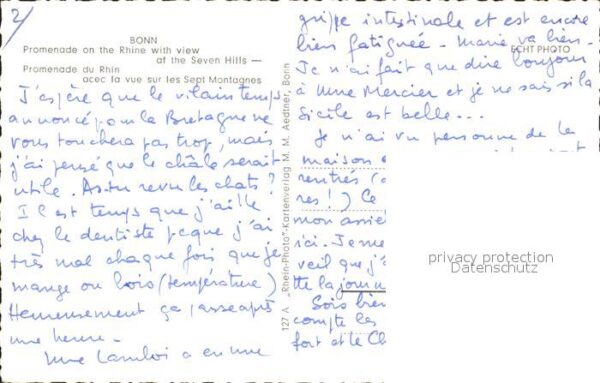 2/
BONN
Promenade on the Rhine with view
of the Seven Hills —
Promenade du Rhin
acec la vue sur les Sept Montagnes
J'espère que le vilain temps
annoncé pour la Bretagne ne
vous touchera pas trop, mais
j'ai pensé que le châle serait
utile. As-tu revu les chats ?
Il est temps que j'aille
chez le dentiste pcque j'ai
très mal chaque fois que je
mange ou bois (température)
Heureusement ça passe après
une heure -
Mme a eu une
127 A „Rhein-Photo"-Kartenverlag M. M. Aedtner, Bonn
grippe intestinale et est encore
bien fatiguée - Marie va bien -
ECHT PHOTO
Je n'ai fait que dire bonjour
à Mme Mercier et je ne sais si la
Sicile est belle...
Je n'ai vu personne de la
maison
rentrés (
res ! ) Ce
mon assie
ici. Je me
veil que j'
tte la journ
Sois bien
compte les
fort et le Ch
privacy protection
Datenschutz